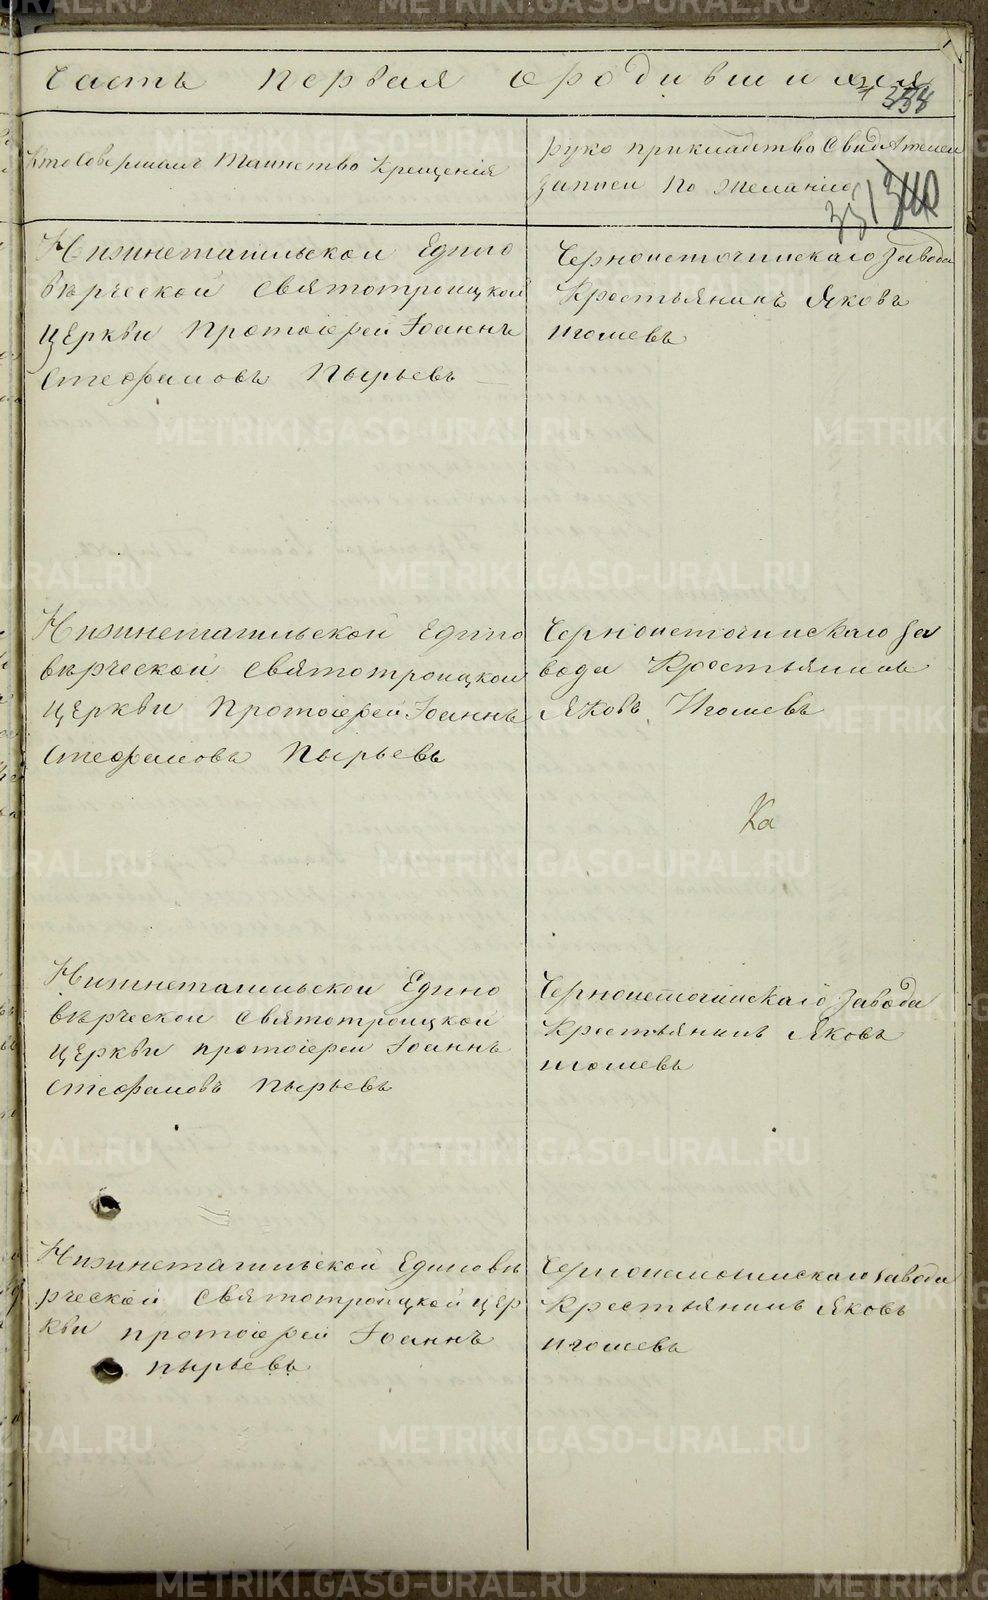 Часть первая о родившихся
338
Кто Совершалъ Таинство Крещенія
руко прикладство Свидѣтелеи
записи по желанію
331 340
Нижнетагильскои Едино
вѣрческой святотроицкой
церкви Протоіереи Іоаннъ
Стефановъ Пырьевъ
Черноисточинскаго завода
Крестьянинъ Яковъ
игошевъ
Нижнетагильской Едино
вѣрческой святотроицкои
церкви Протоіереи Іоаннъ
Стефановъ Пырьевъ
Черноисточинскаго за
вода Крестьянинъ
Яковъ Игошевъ
Ка
Нижнетагильскои Едино
вѣрческои святотроицкои
церкви протоіереи Іоаннъ
Стефановъ Пырьевъ
Черноисточинскаго завода
Крестьянинъ Яковъ
игошевъ
Нижнетагильской Единовѣ
рческой святотроицкой цер
кви протоіереи Іоаннъ
пырьевъ
Черноисточинскаго завода
Крестьянинъ Яковъ
игошевъ
METRIKI.GASO-URAL.RU